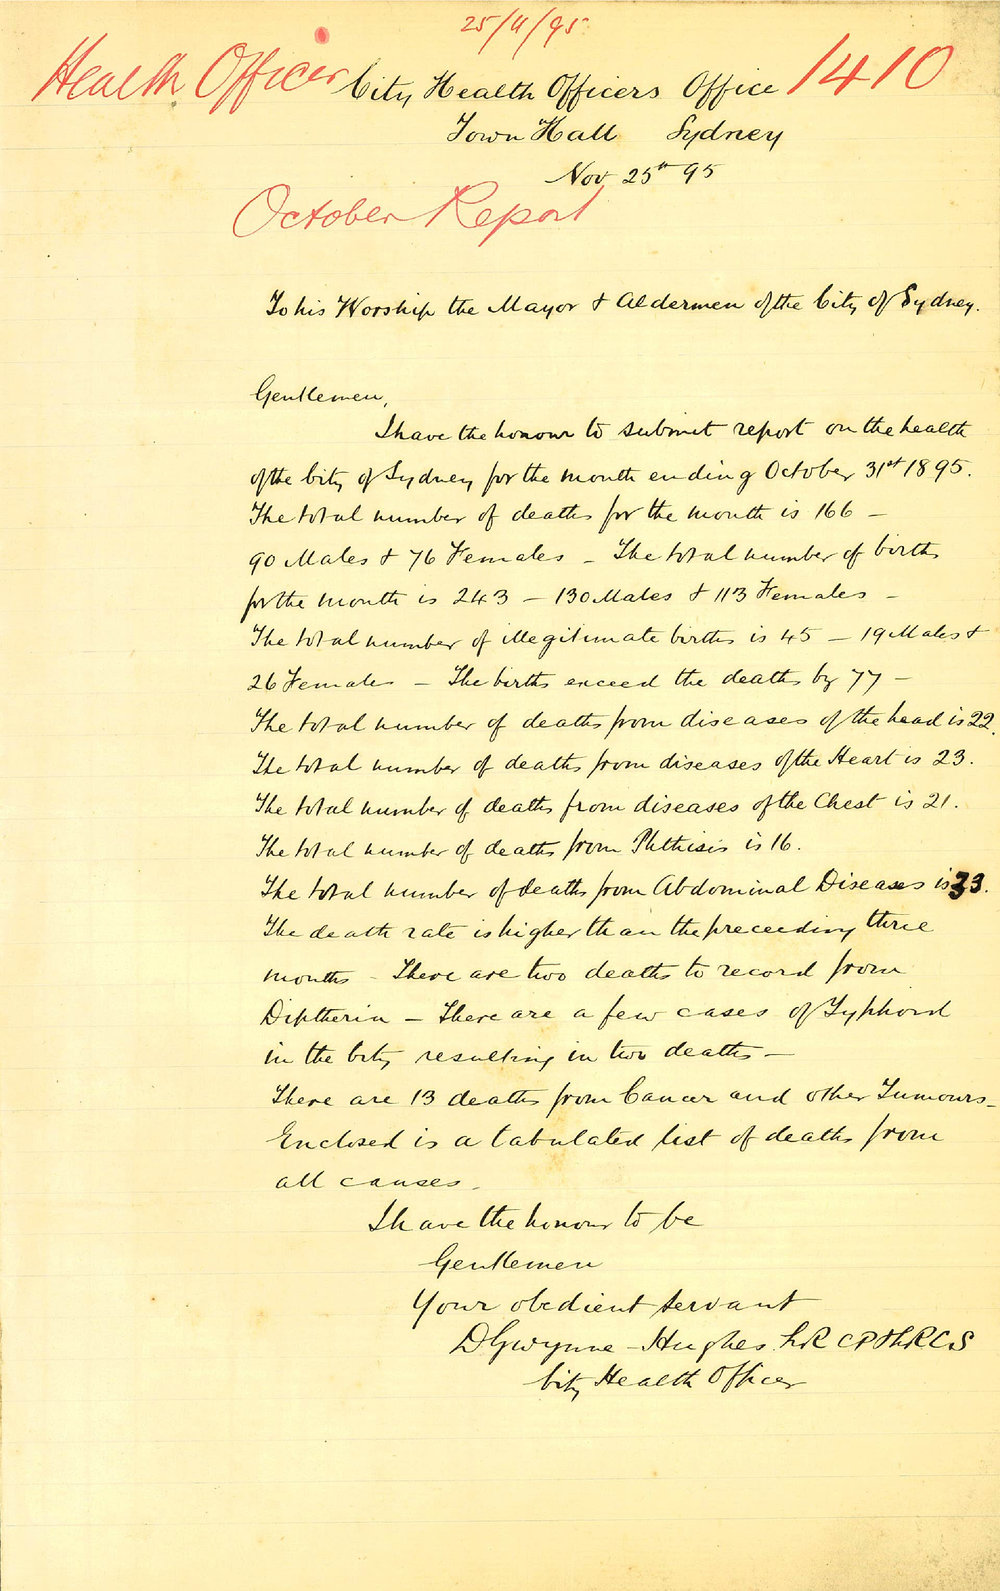 25/11/95
Health Officer
1410
City Health Officers Office
Town Hall Sydney
Nov 25th 95
October Report
To his Worship the Mayor & Aldermen of the City of Sydney.
Gentlemen,
I have the honour to submit report on the health
of the City of Sydney for the month ending October 31st 1895.
The total number of deaths for the month is 166 –
90 Males & 76 Females – The total number of births
for the month is 243 – 130 Males & 113 Females –
The total number of illegitimate births is 45 – 19 Males &
26 Females – The births exceed the deaths by 77 –
The total number of deaths from diseases of the head is 22.
The total number of deaths from diseases of the Heart is 23.
The total number of deaths from diseases of the Chest is 21.
The total number of deaths from Phthisis is 16.
The total number of deaths from Abdominal Diseases is 33.
The death rate is higher than the preceeding three
months – There are two deaths to record from
Diptheria – There are a few cases of Typhoid
in the City resulting in two deaths –
There are 13 deaths from Cancer and other Tumours –
Enclosed is a tabulated list of deaths from
all causes.
I have the honour to be
Gentlemen
Your obedient servant
D Gwynne-Hughes LRCP & LRCS
City Health Officer